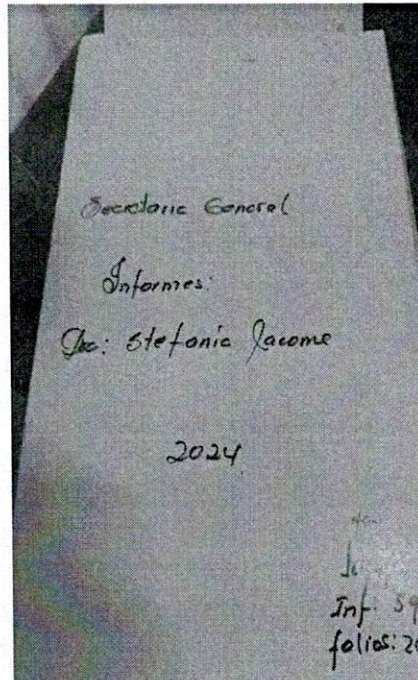 Secretaria General
Informes:
Stefanie Jacome
2024
Inf:
folios: